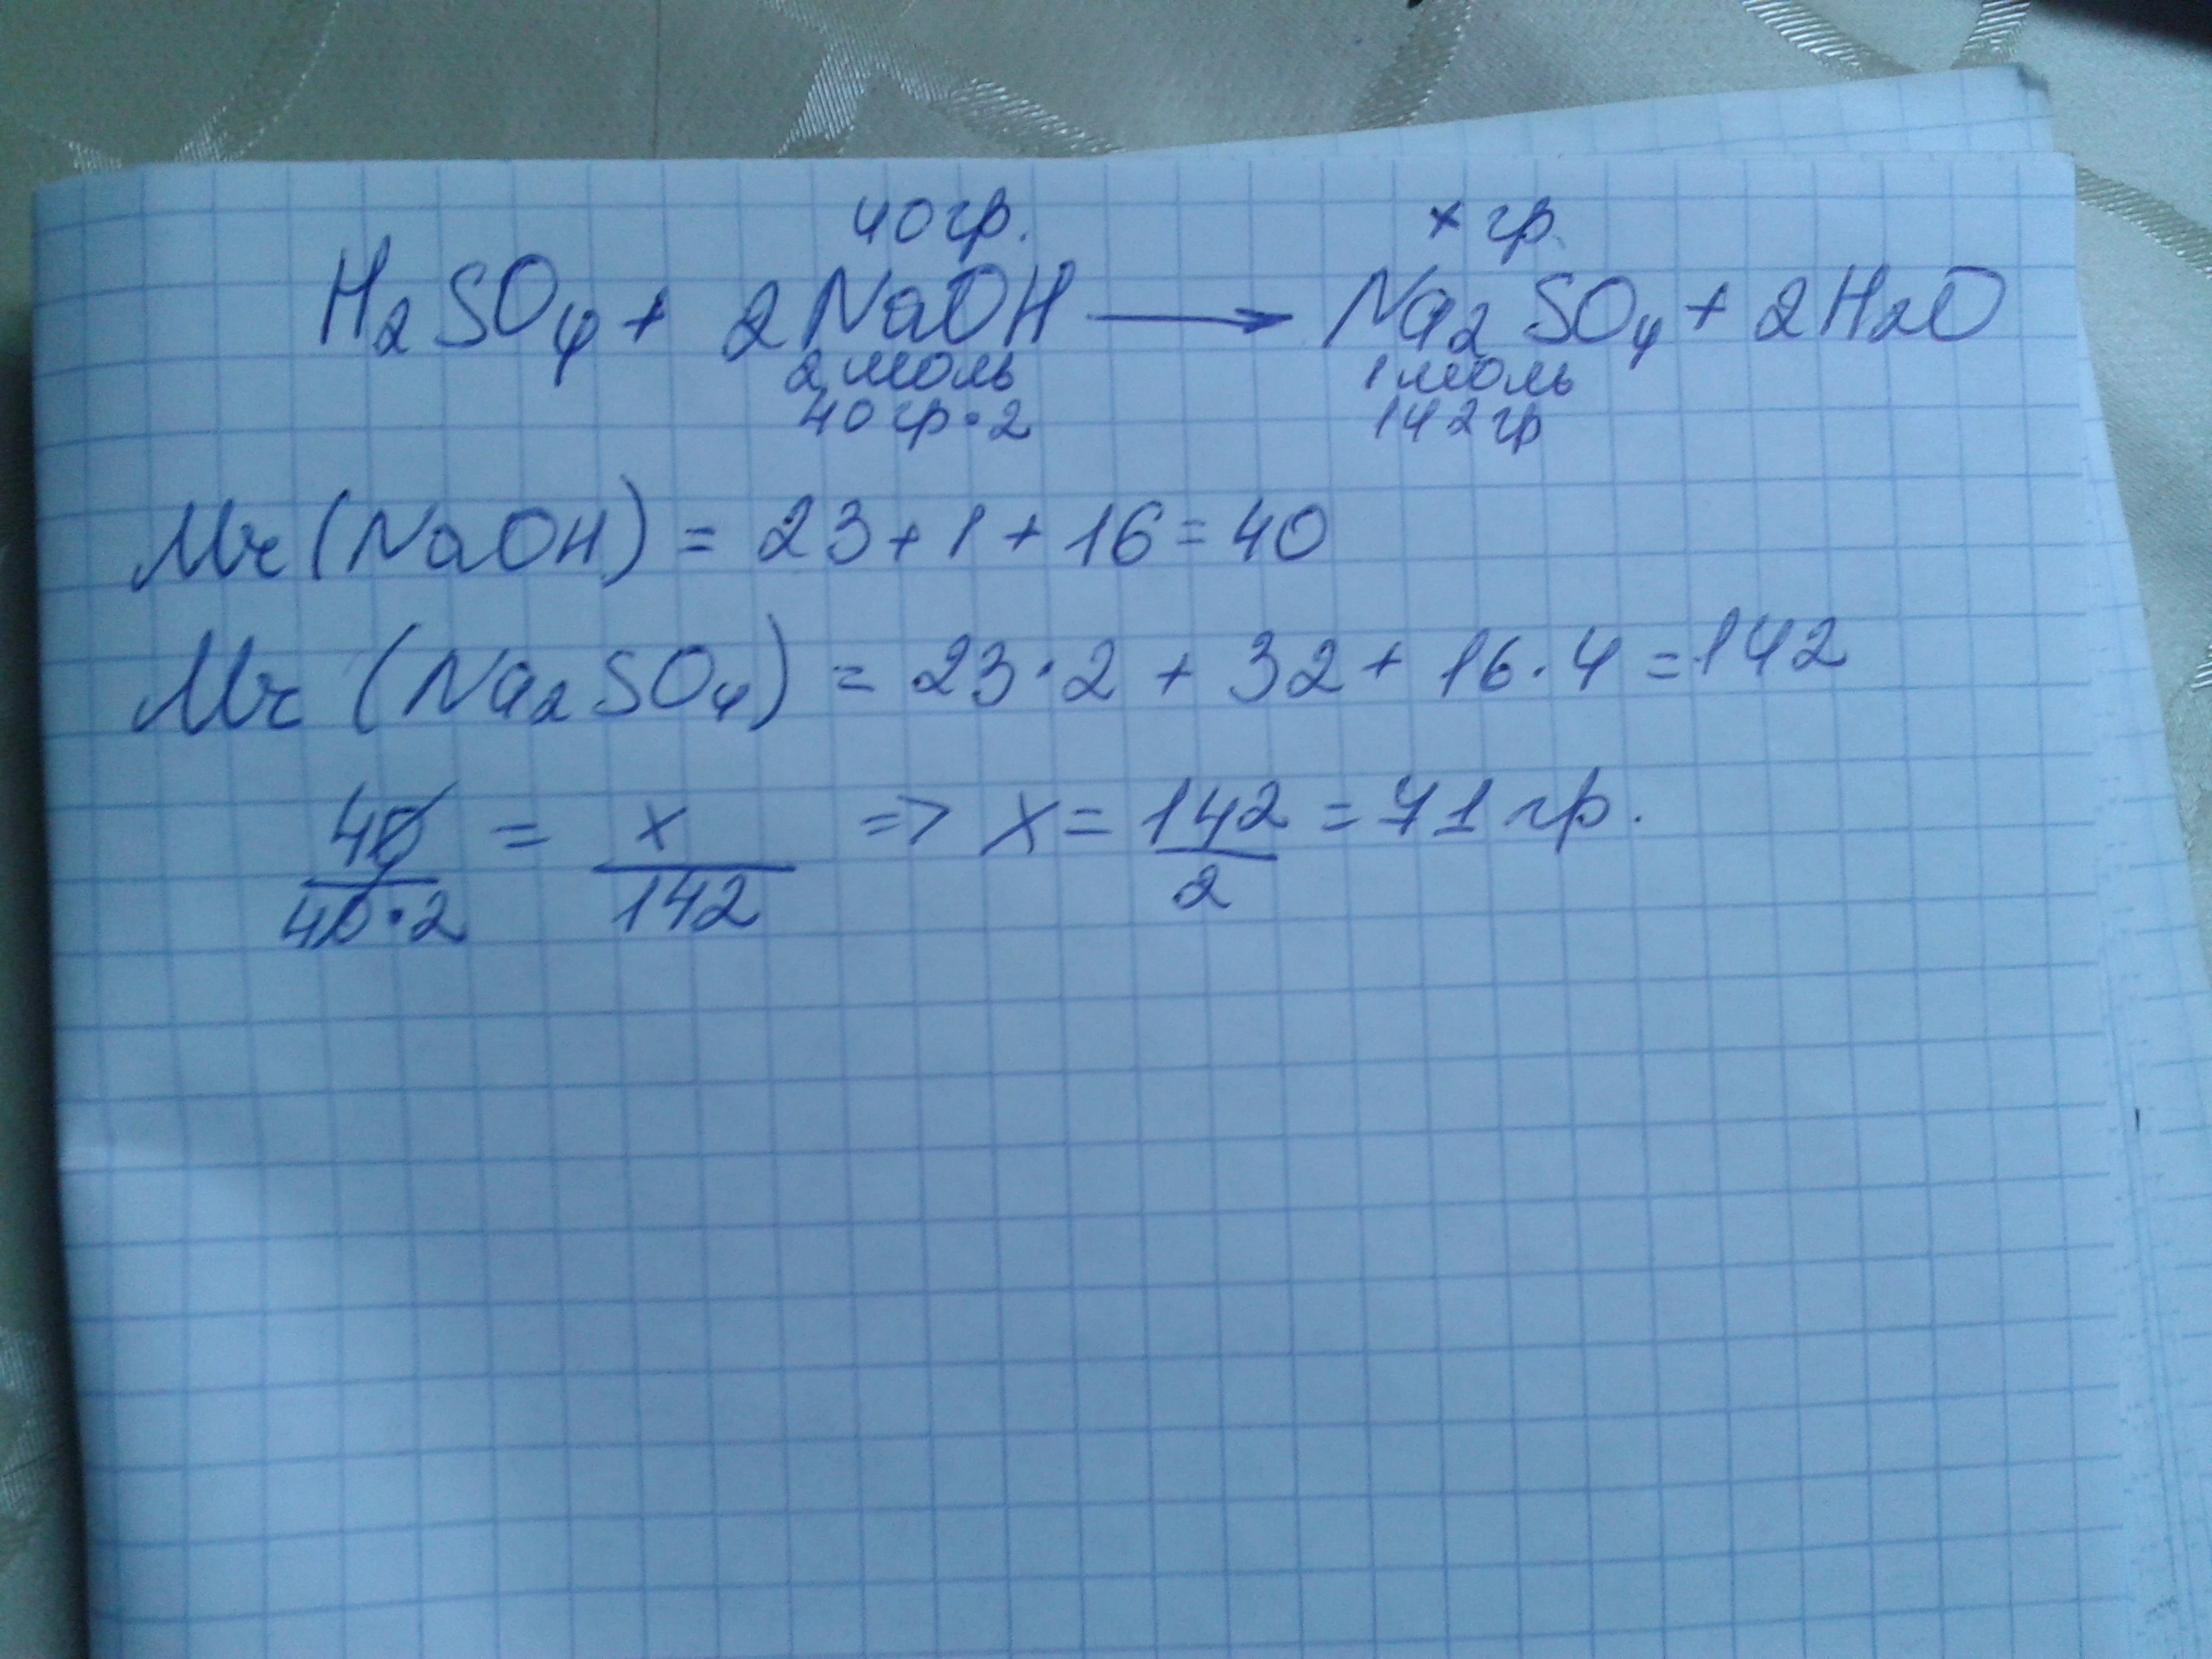 40гр. x гр.
H₂SO₄ + 2NaOH ⟶ Na₂SO₄ + 2H₂O
2 моль 1 моль
40 гр·2 142 гр
Mr (NaOH) = 23 + 1 + 16 = 40
Mr (Na₂SO₄) = 23·2 + 32 + 16·4 = 142
40/40·2 = x/142 => x = 142/2 = 71 гр.